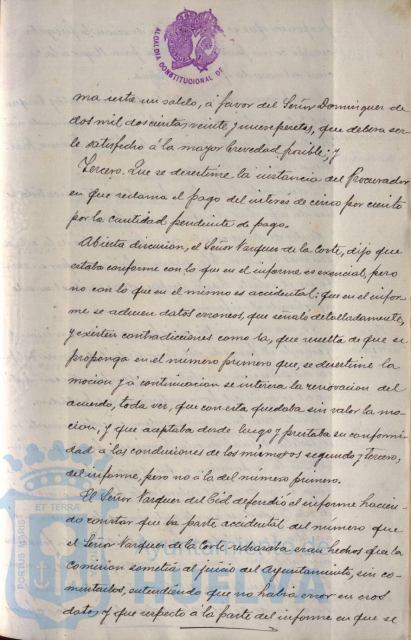 ALCALDÍA CONSTITUCIONAL DE
ma resta un saldo, á favor del Señor Dominguez de
dos mil doscientas veinte y nueve pesetas, que debera ser
le satisfecho á la mayor brevedad posible; y
Tercero. Que se desestime la instancia del Procurador
en que reclama el pago del interes de cinco por ciento
por la cantidad pendiente de pago.
Abierta discusion, el Señor Vazquez de la Corte, dijo que
estaba conforme con lo que en el informe es esencial, pero
no con lo que en el mismo es accidental: que en el infor-
me se aducen datos erroneos, que señaló detalladamente,
y existen contradiciones como la, que resulta de que se
proponga en el número primero que, se desestime la
mocion y á continuacion se interesa la renovacion del
acuerdo, toda vez, que con esta quedaba sin valor la mo
cion, y que aceptaba desde luego y prestaba su conformi
dad á las conclusiones de los números segundo y tercero,
del informe, pero no á la del número primero.
El Señor Vazquez del Cid defendió el informe hacien-
do constar que la parte accidental del número que
el Señor Vazquez de la Corte rechazaba eran hechos que la
comision sometia al juicio del Ayuntamiento, sin co-
mentarlos, entendiendo que no habia error en esos
datos, y que respecto á la parte del informe en que se
PORTUS MARIS
ET TERRA
Ayuntamiento de
HUELVA